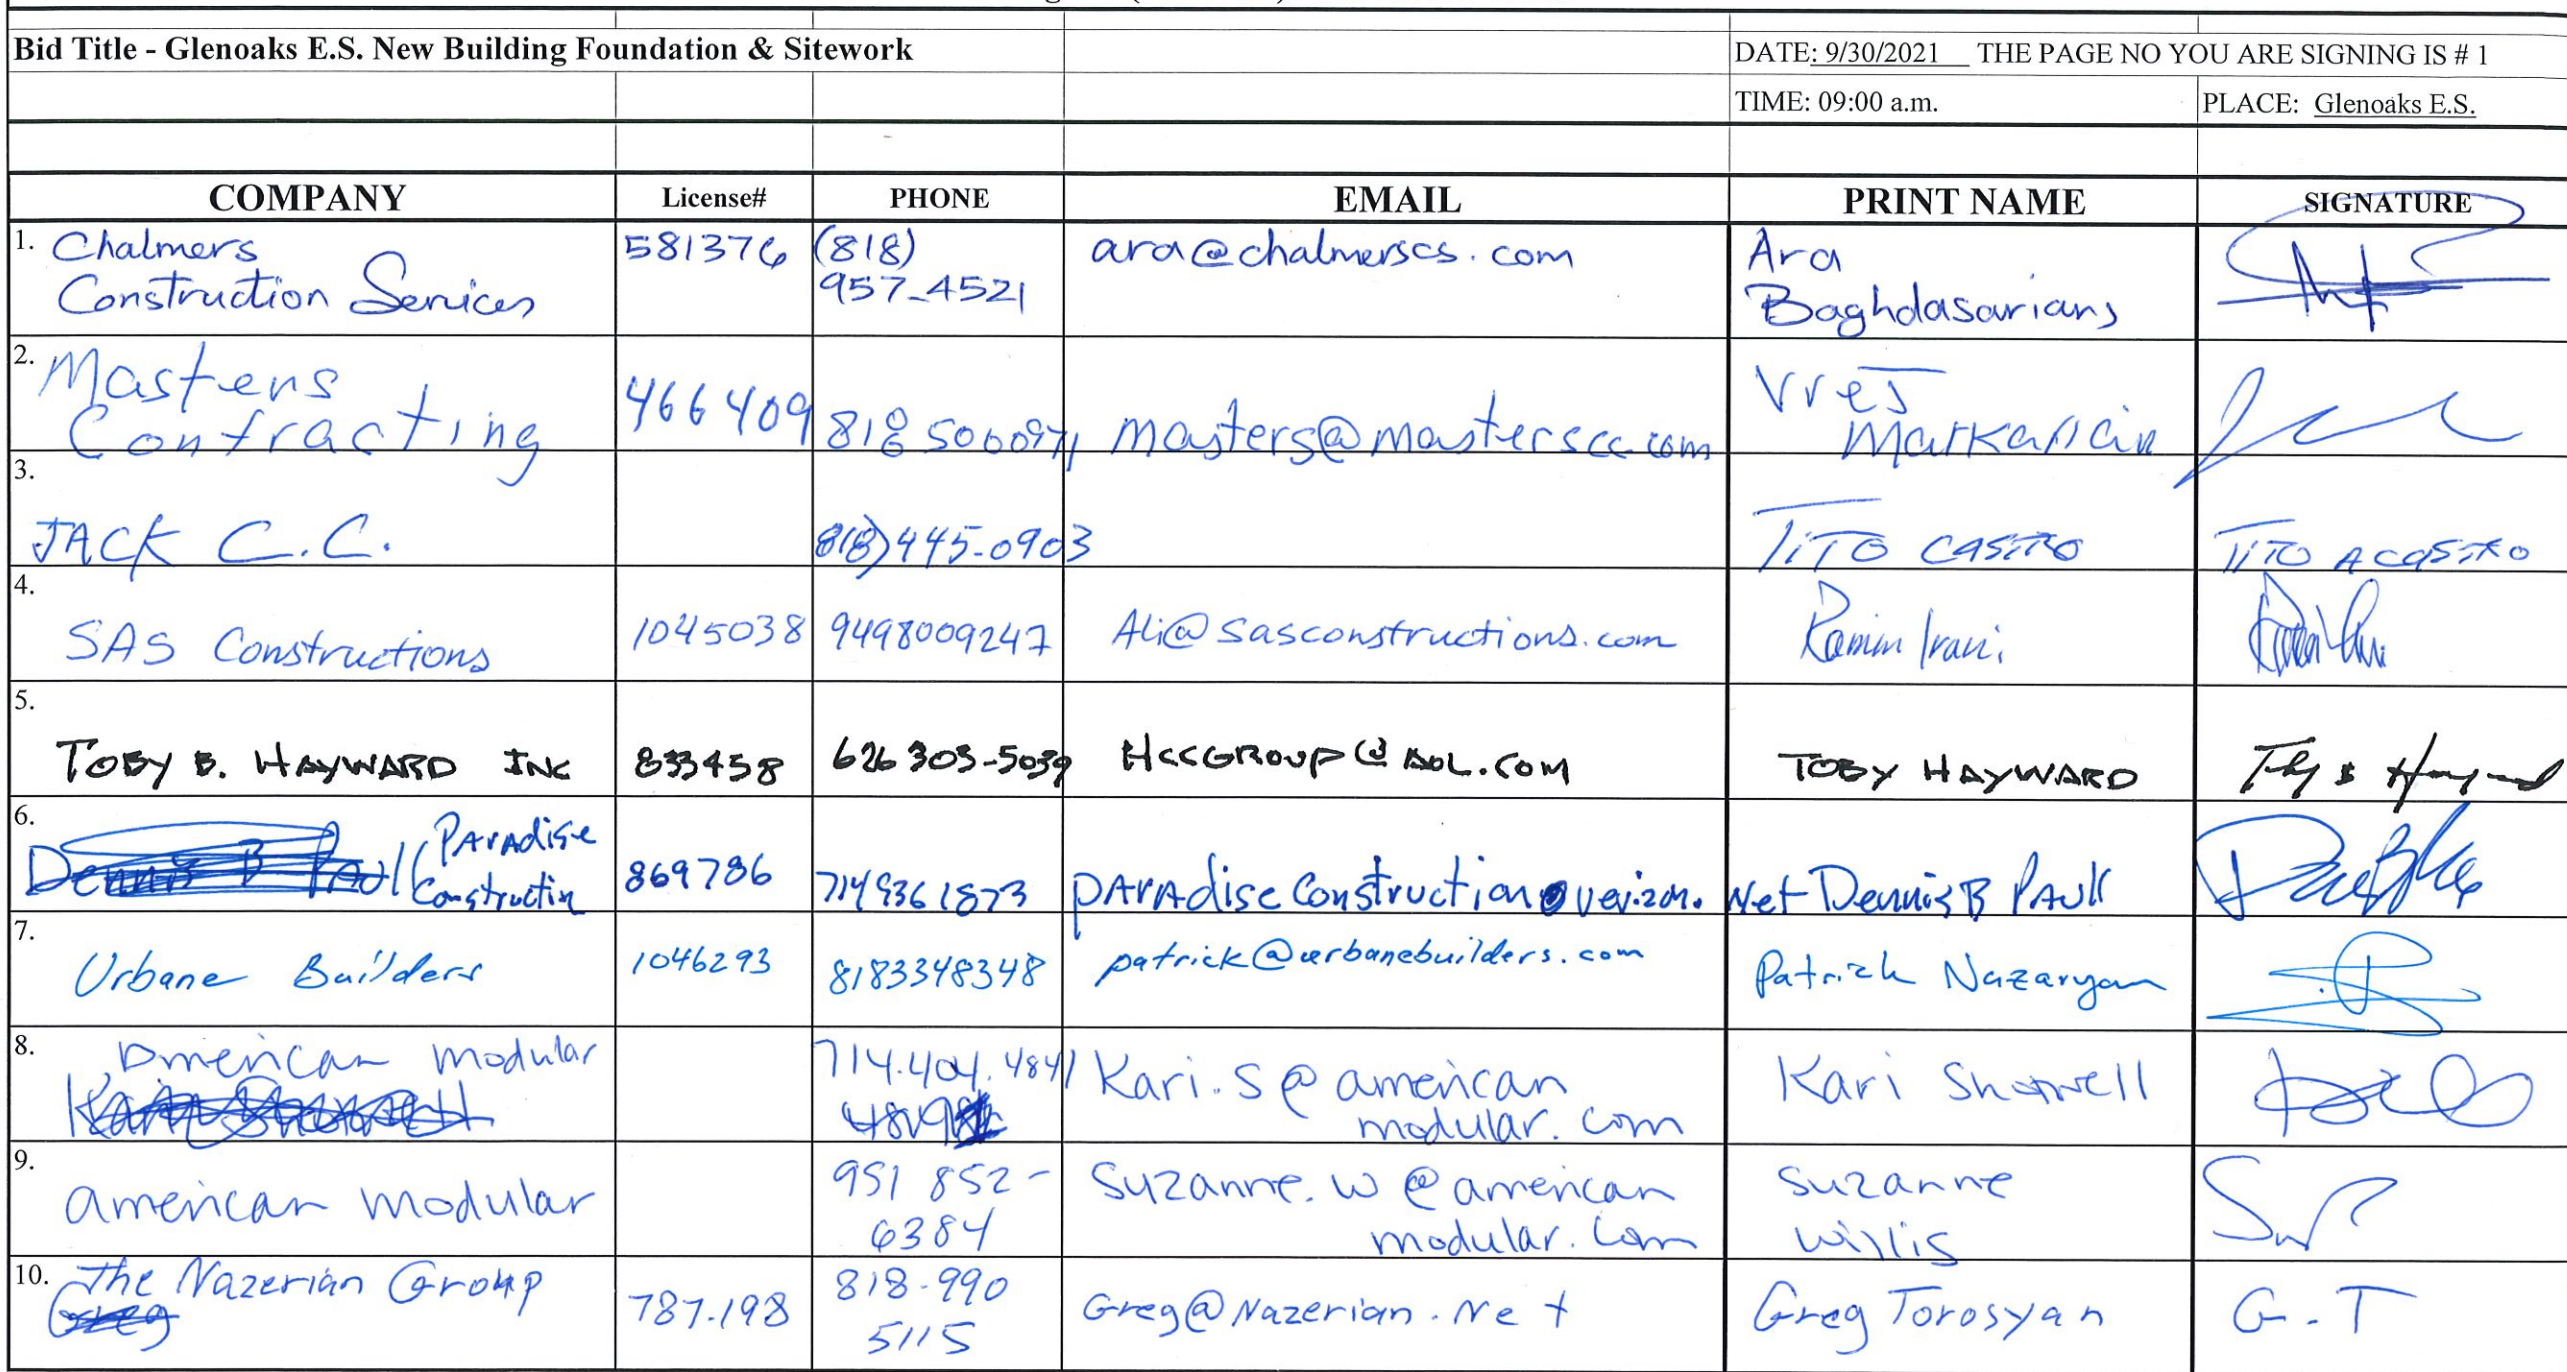 Bid Title - Glenoaks E.S. New Building Foundation & Sitework
DATE: 9/30/2021 THE PAGE NO YOU ARE SIGNING IS # 1
TIME: 09:00 a.m. PLACE: Glenoaks E.S.
COMPANY License# PHONE EMAIL PRINT NAME SIGNATURE
1. Chalmers 581376 (818) ara@chalmerscs.com Ara
Construction Services 957-4521 Baghdasarians
2. Masters 466409 Vrej
Contracting 818 5000971 masters@masterscc.com Markarian
3.
JACK C.C. 818) 445-0903 TITO CASTRO TITO A CASTRO
4.
SAS Constructions 1045038 9498009247 Ali@sasconstructions.com Ramin Irani
5.
TOBY B. HAYWARD INC 833458 626 303-5039 HCCGROUP@AOL.COM TOBY HAYWARD
6. PArAdise
Construction 869786 7149361873 pArAdiseConstruction@verizon.Net Dennis B PAull
7.
Urbane Builders 1046293 8183348348 patrick@urbanebuilders.com Patrick Nazaryan
8. American Modular 714.404.4841 Kari.S@american Kari Shotwell
modular.com
9. 951 852- Suzanne.w@american Suzanne
american modular 6384 modular.com Willis
10. The Nazerian Group 787.198 818-990 Greg@Nazerian.Net Greg Torosyan G.T
5115